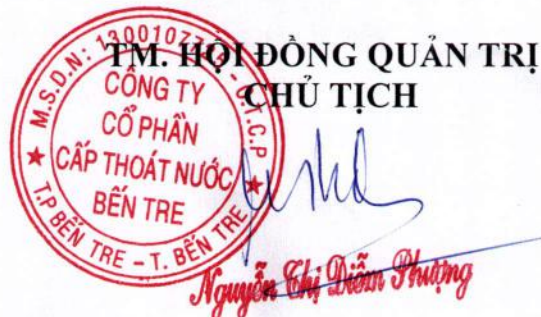 TM. HỘI ĐỒNG QUẢN TRỊ
CHỦ TỊCH
M.S.D.N: - C.T.C.P
CÔNG TY
CỔ PHẦN
CẤP THOÁT NƯỚC
BẾN TRE
T.P BẾN TRE - T. BẾN TRE
Nguyễn Thị Diễm Phượng